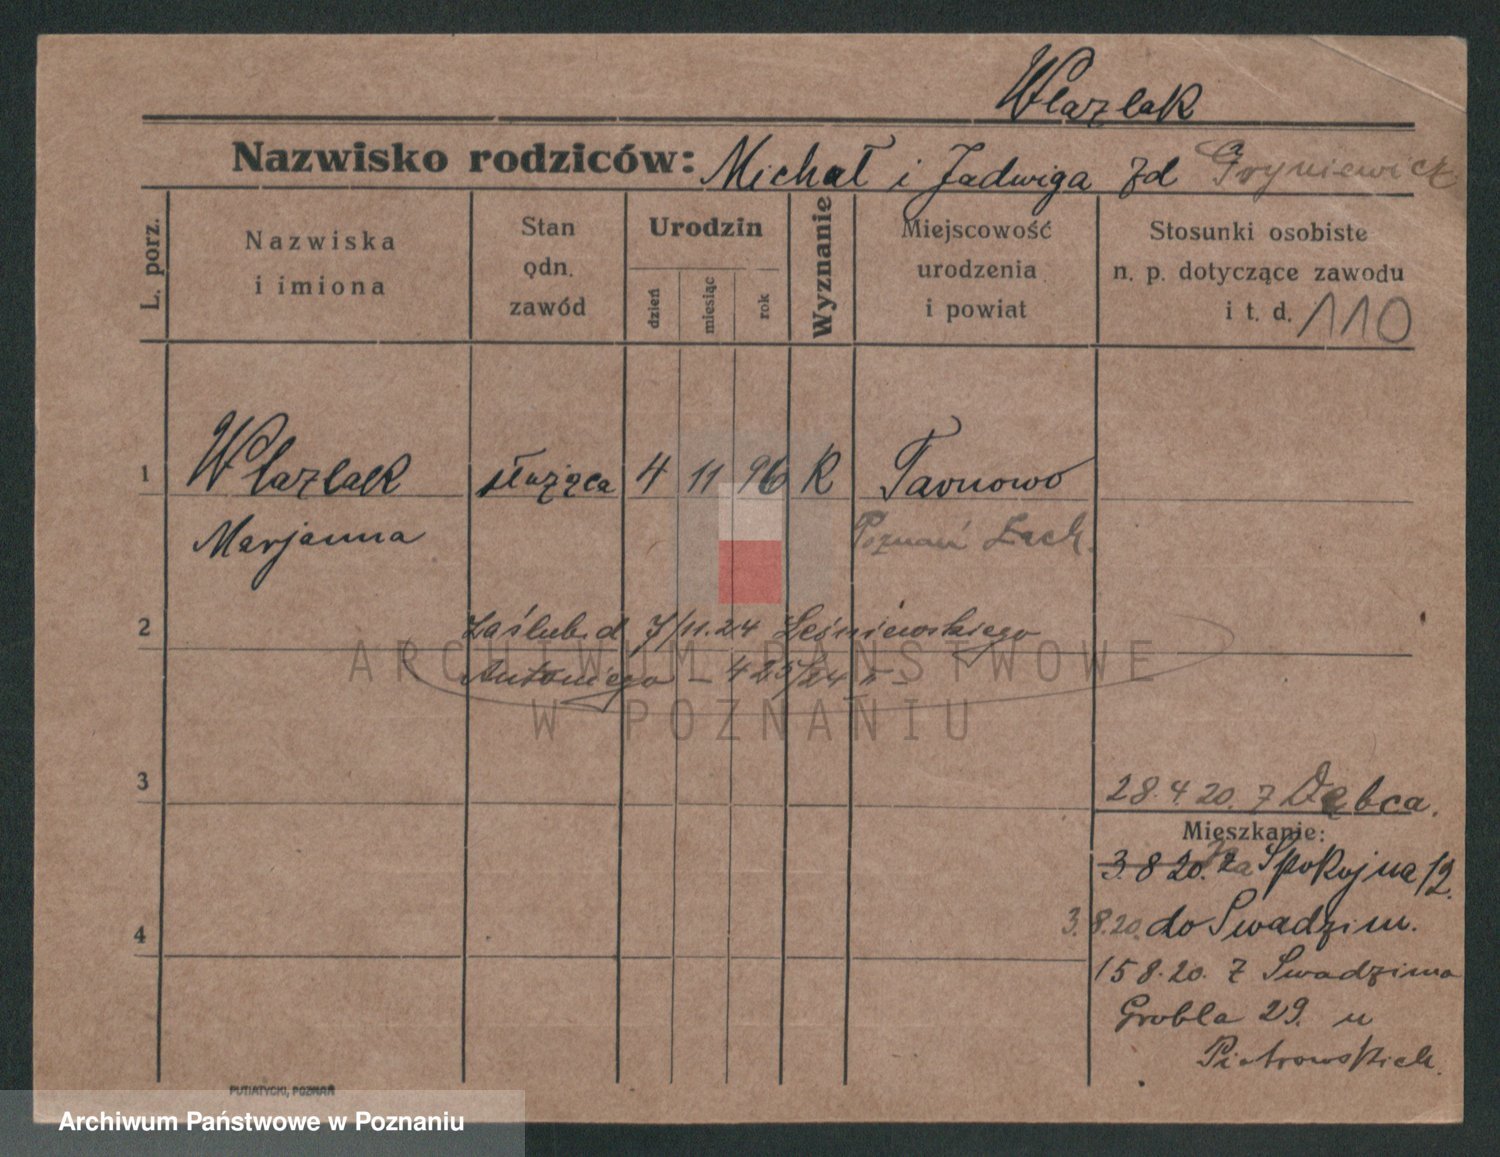 Wlazlak
Nazwisko rodziców: Michał i Jadwiga zd Gryniewicz
L. porz.
Nazwiska
i imiona
Stan
odn.
zawód
Urodzin
dzień
miesiąc
rok
Wyznanie
Miejscowość
urodzenia
i powiat
Stosunki osobiste
n. p. dotyczące zawodu
i t. d. 110
1 Wlazlak służąca 4 11 96 R Tarnowo
Marjanna Poznań Zach.
2 Zaślub. d 7/11.24 Leśniewskiego
Antoniego - 425/24
ARCHIWUM PAŃSTWOWE
W POZNANIU
3
28.4 20. z Dębca.
Mieszkanie:
3.8 20. Spokojna 12.
4
3.8.20. do Swadzim.
15 8.20. z Swadzima
Grobla 29. u
Piotrowskich.
PUTIATYCKI, POZNAŃ
Archiwum Państwowe w Poznaniu